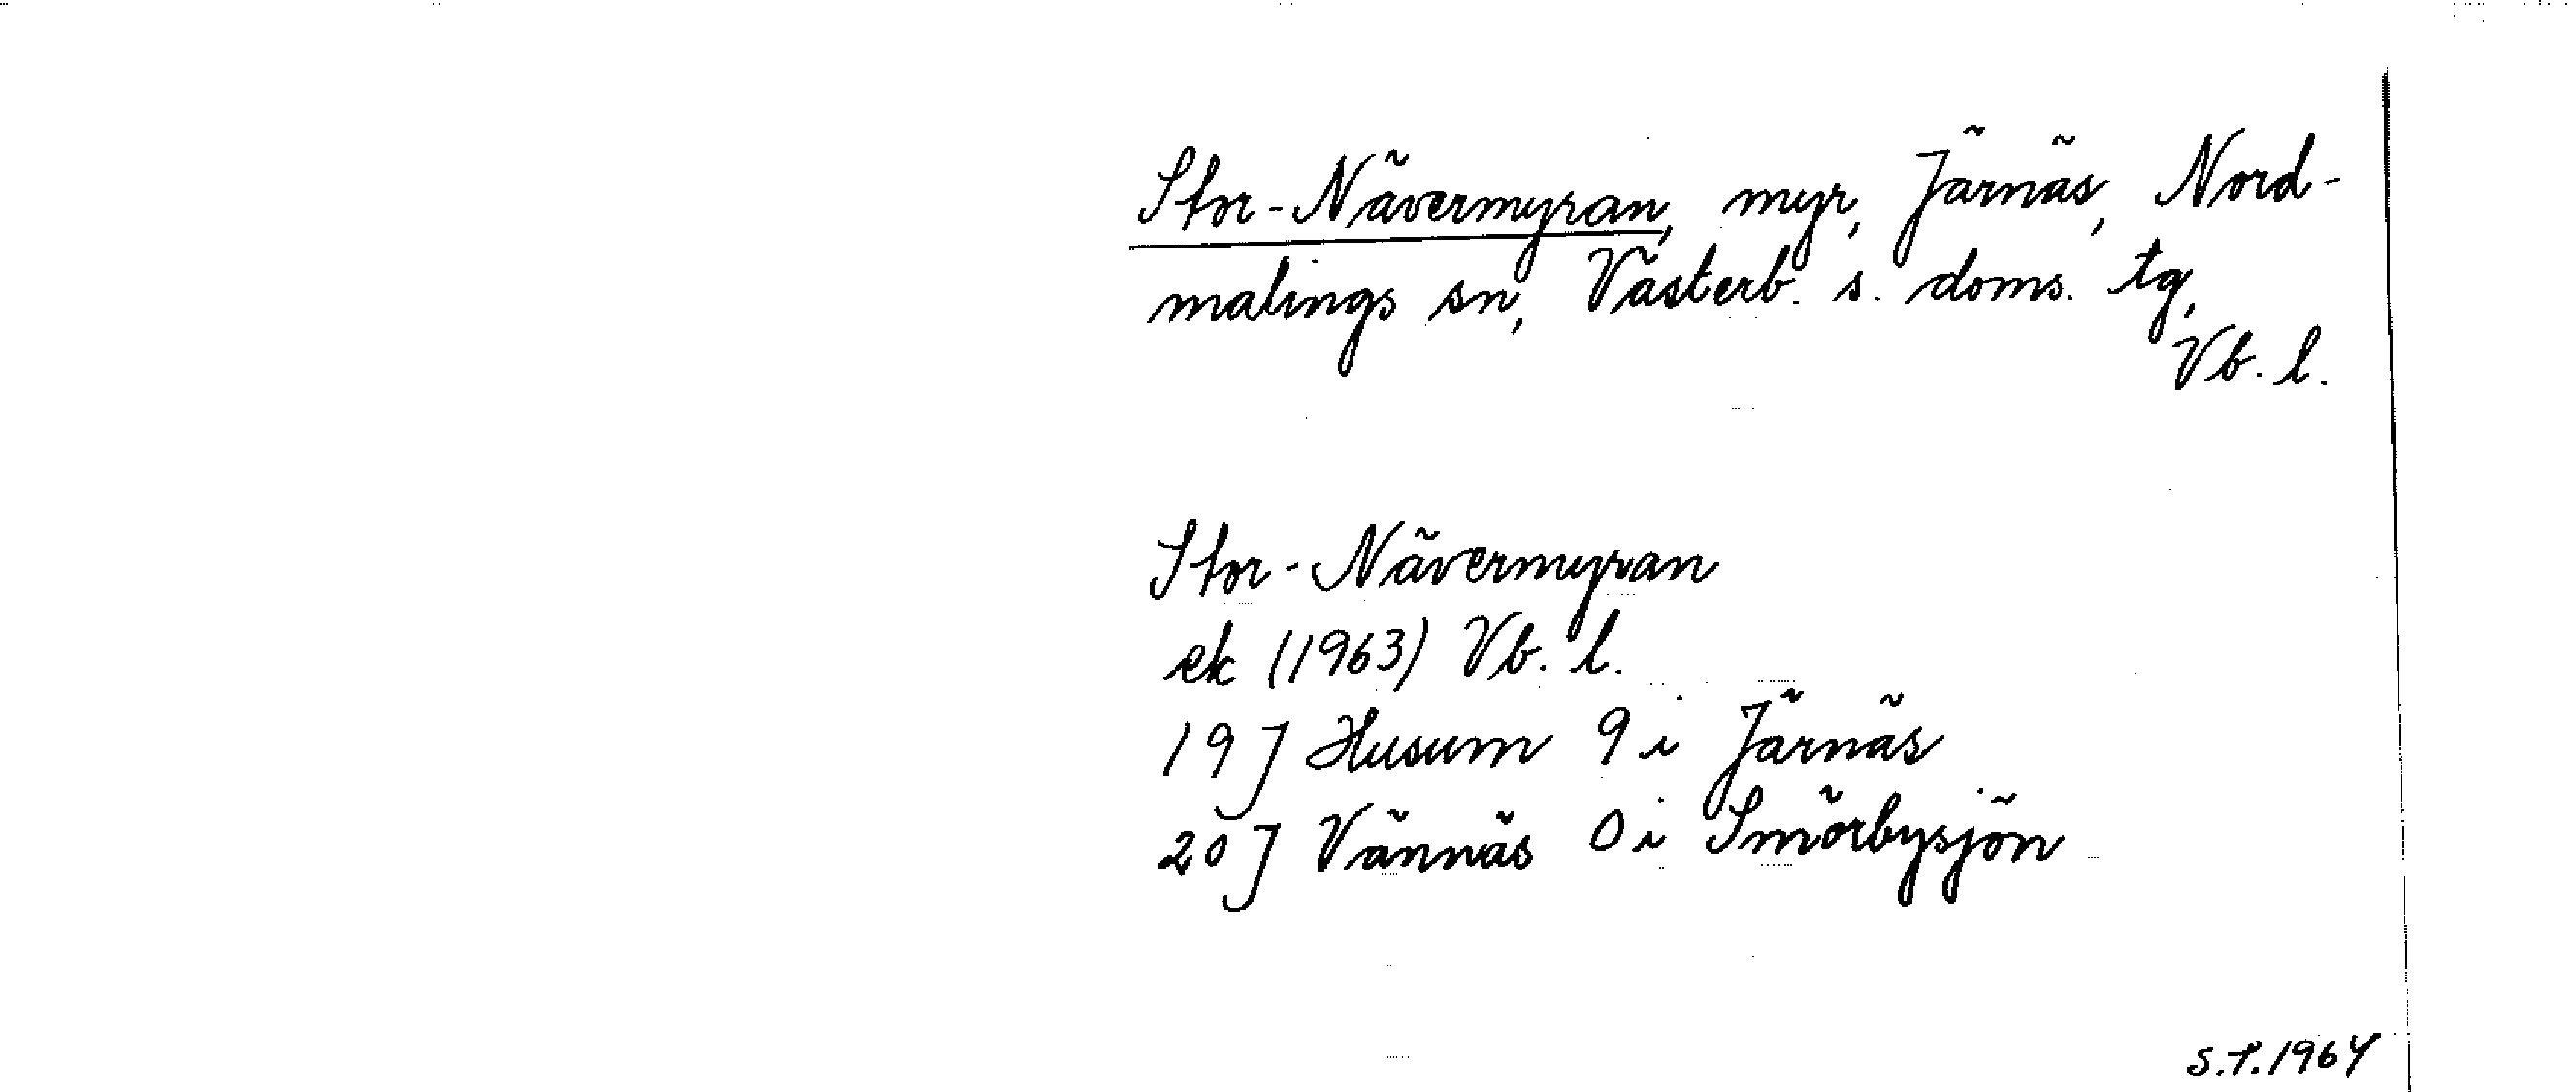 Stor-Nävermyran, myr, Järnäs, Nord-
malings sn, Västerb. s. doms. tg,
Vb. l.
Stor-Nävermyran
ek (1963) Vb. l.
19 J Husum 9 i Järnäs
20 J Vännäs 0 i Smörbysjön
S.T. 1964